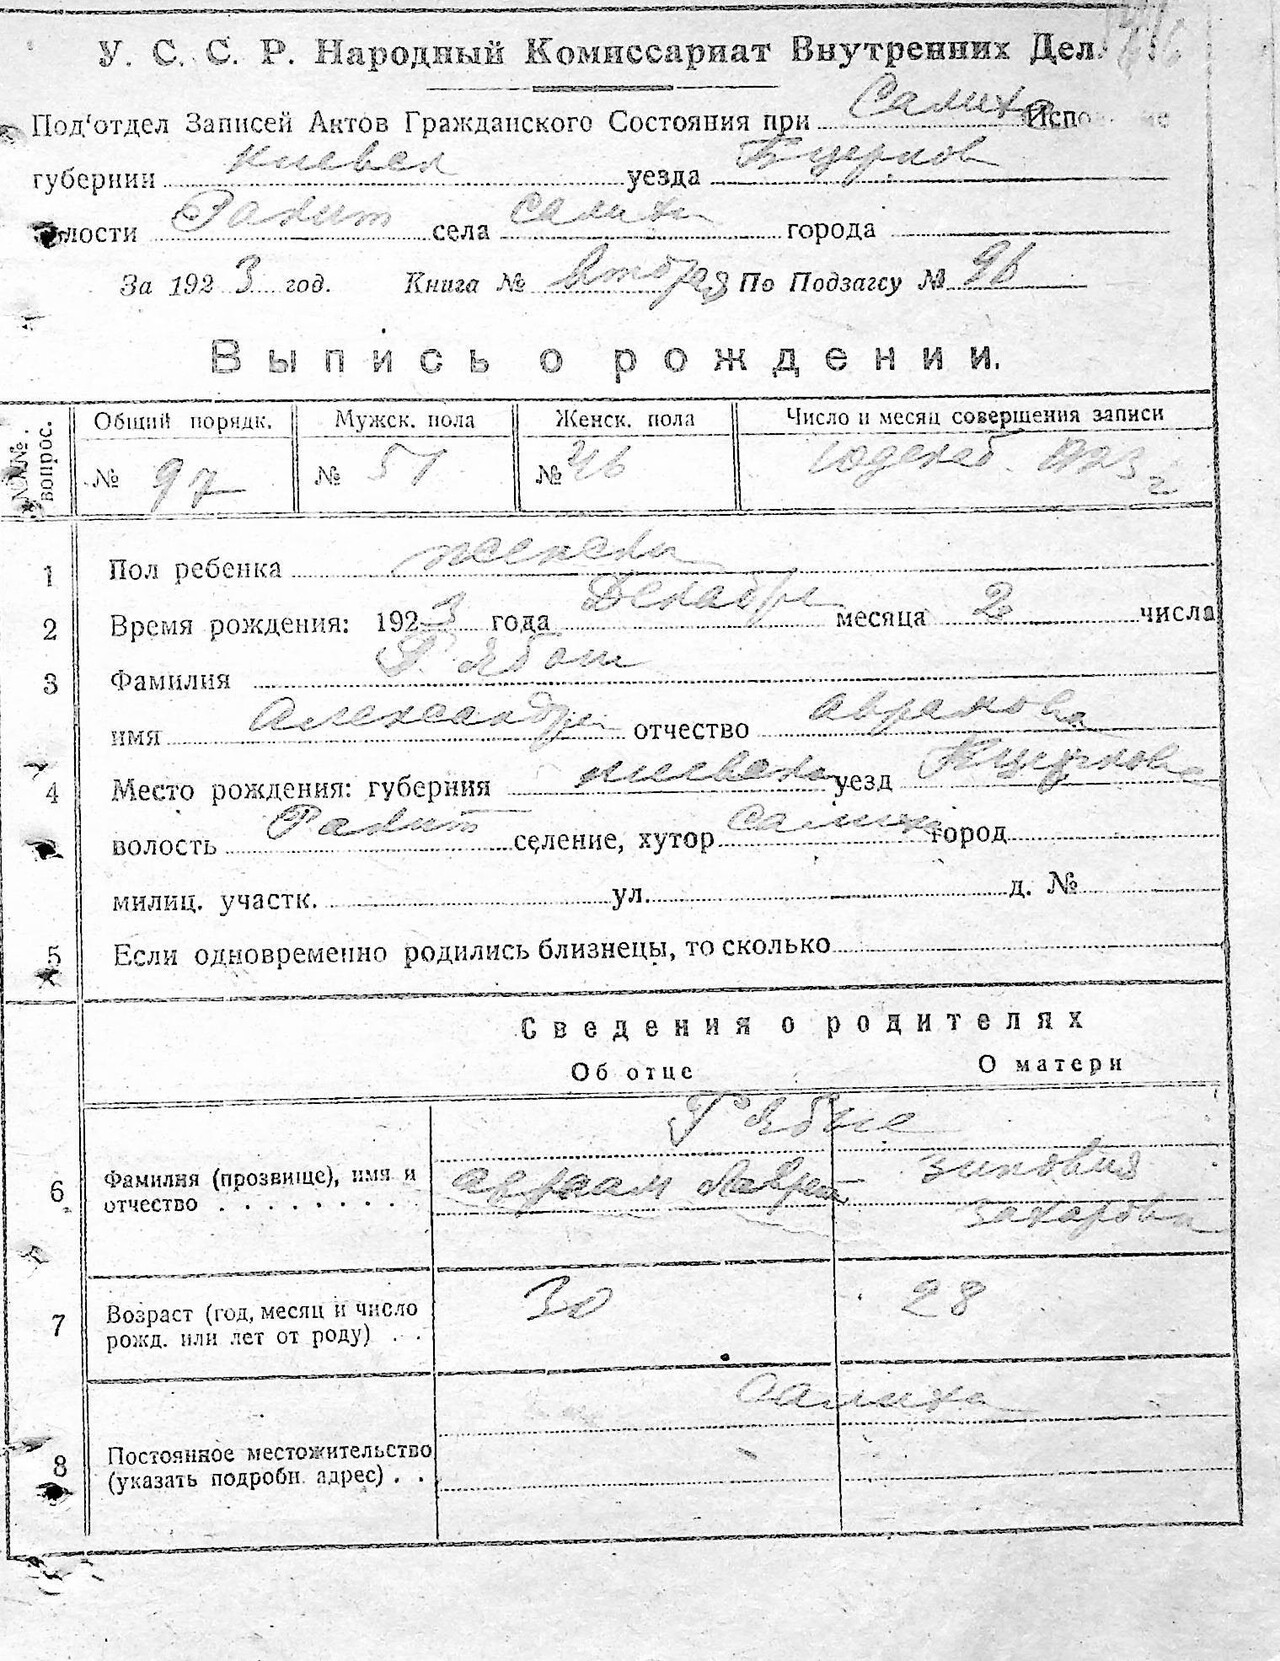 У. С. С. Р. Народный Комиссариат Внутренних Дел.
Под'отдел Записей Актов Гражданского Состояния при Салиха
губернии Киевск уезда Бцерков
лости Ракит села Салиха города
За 1923 год. Книга № вторая По Подзагсу № 96
Выпись о рождении.
№№ вопрос. Общий порядк. Мужск. пола Женск. пола Число и месяц совершения записи
№ 97 № 51 № 46
1 Пол ребенка женск
2 Время рождения: 1923 года Декабря месяца 2 числа
3 Фамилия
имя Александра отчество Аврамова
4 Место рождения: губерния Киевска уезд Бцеркова
волость Ракит селение, хутор Салиха город
милиц. участк. ул. д. №
5 Если одновременно родились близнецы, то сколько
Сведения о родителях
Об отце О матери
6 Фамилия (прозвище), имя и отчество . . . . . . . . Авраам Зиновия Захарова
7 Возраст (год, месяц и число рожд. или лет от роду) . . 30 28
Салиха
8 Постоянное местожительство (указать подробн. адрес) . .